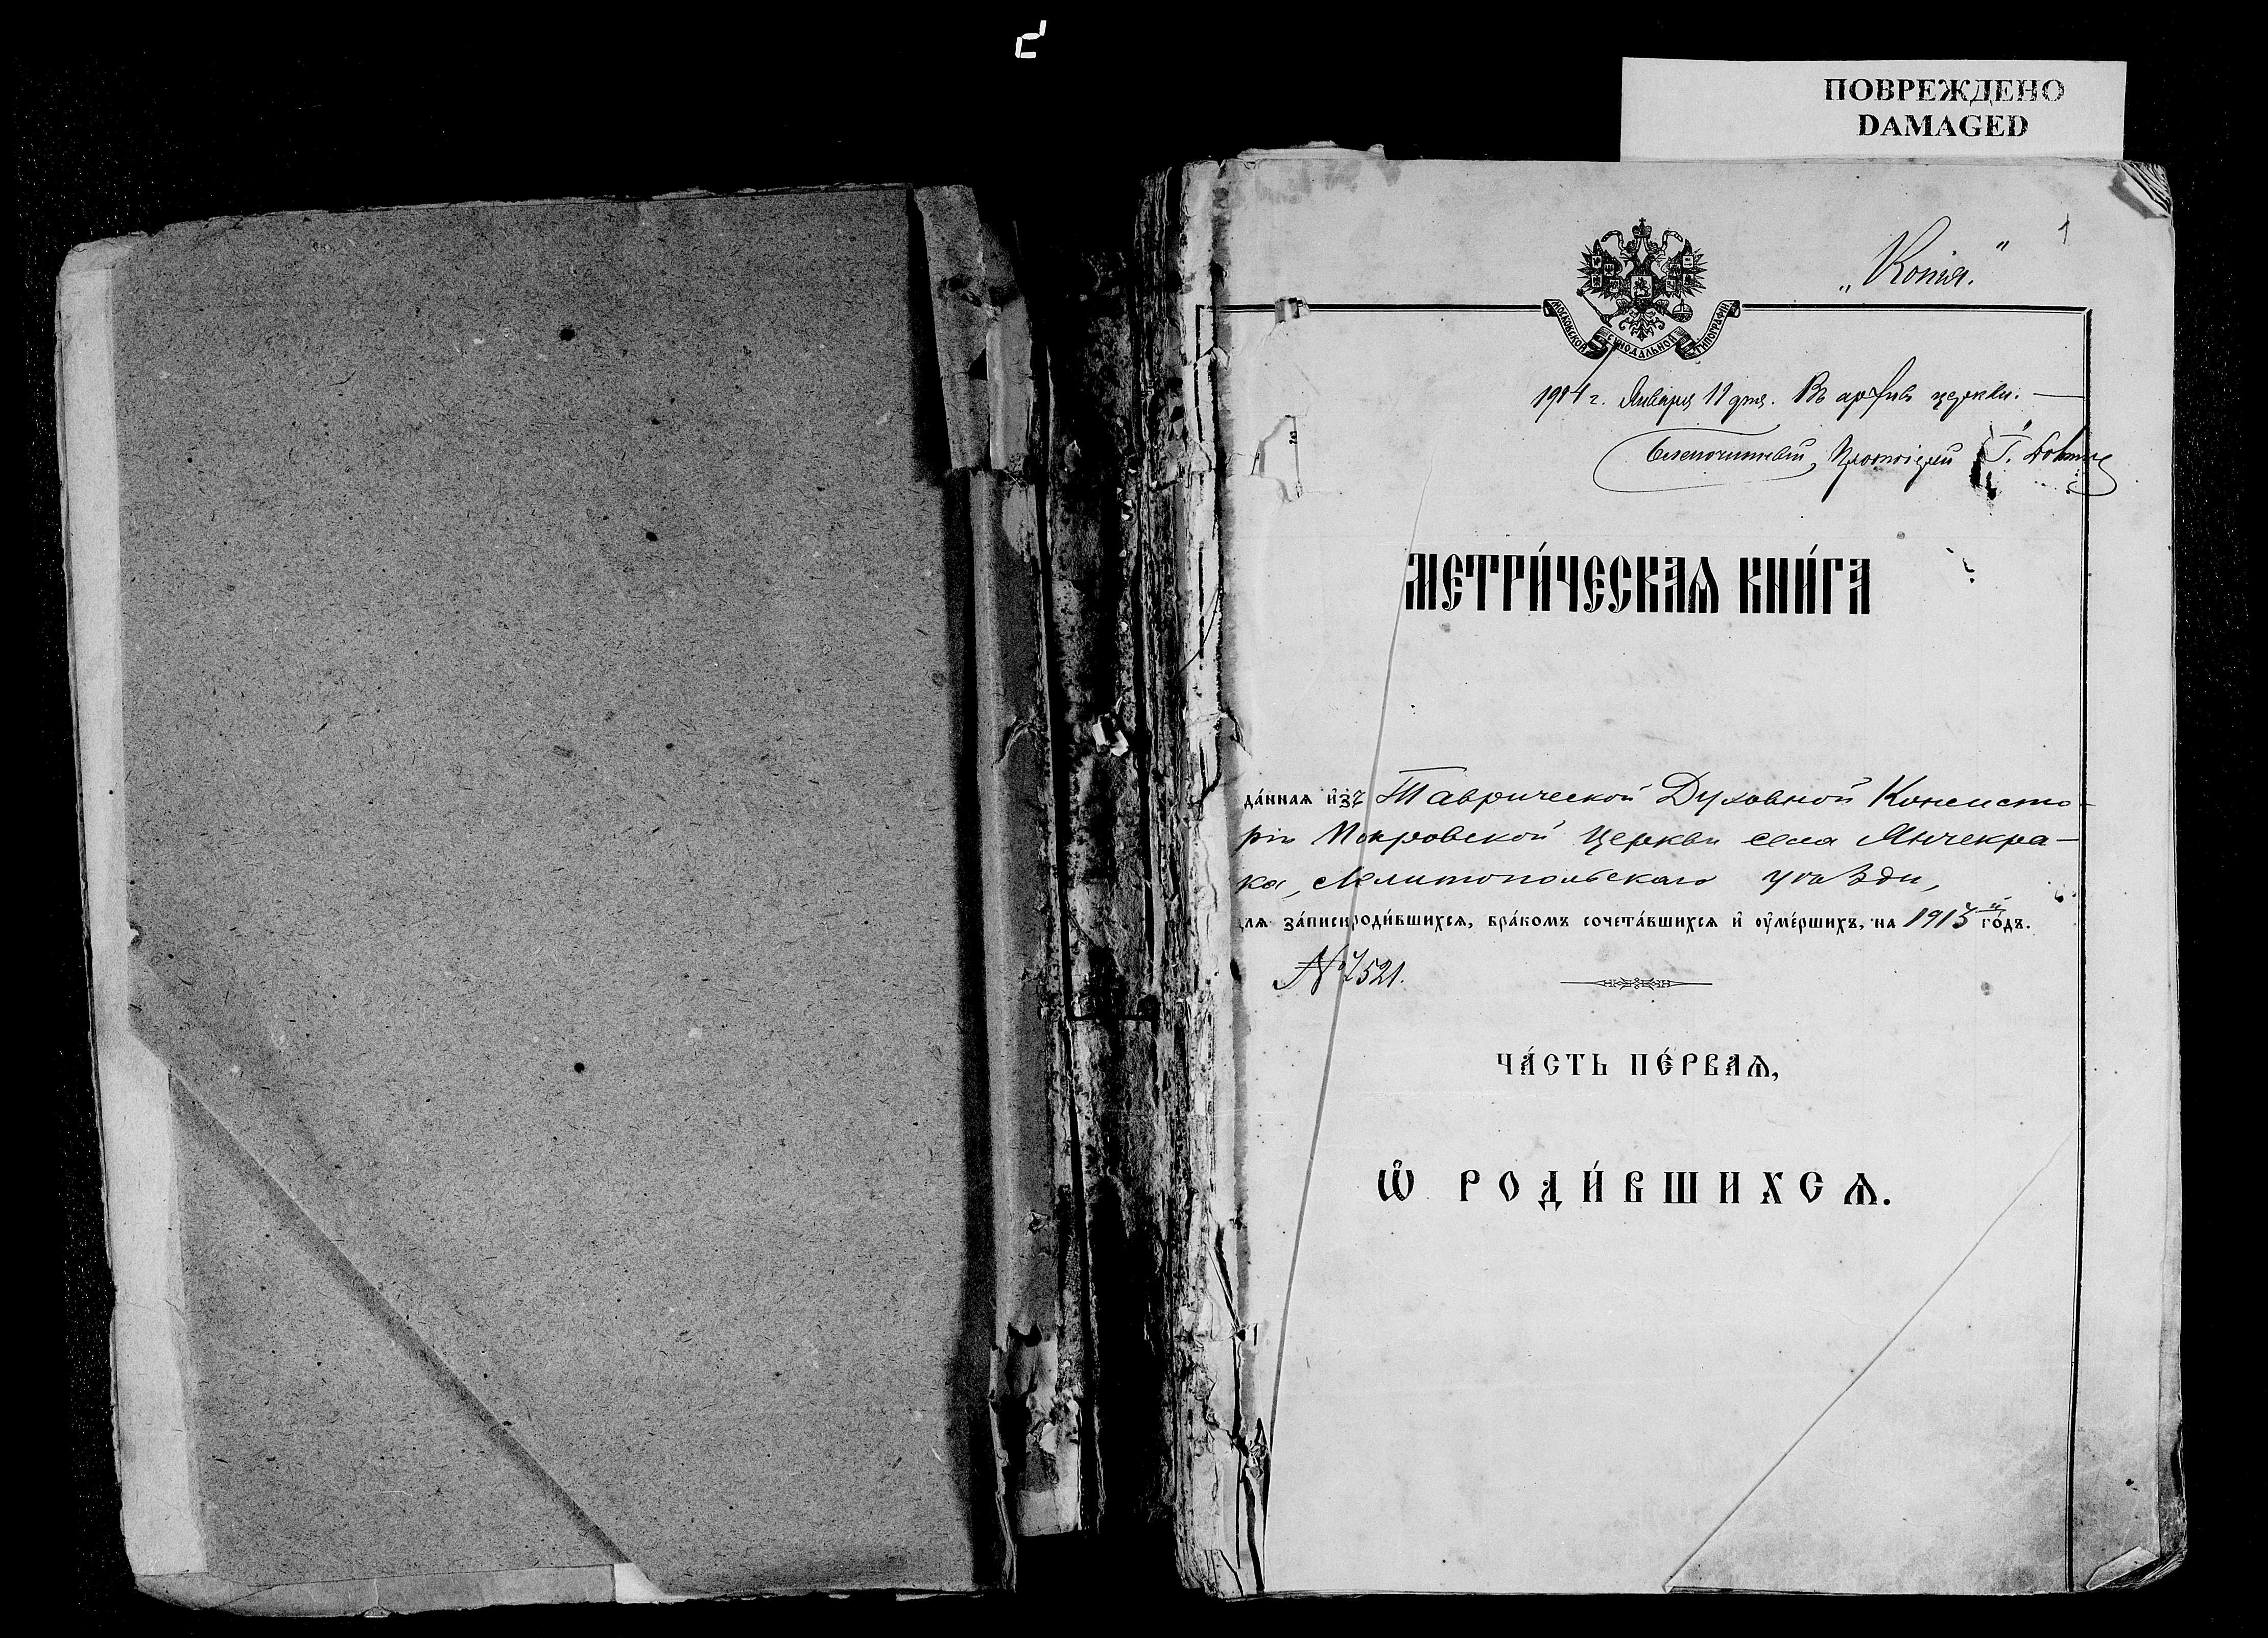 2
ПОВРЕЖДЕНО
DAMAGED
1
„Копія."
МОСКОВСКОЙ СѴНОДАЛЬНОЙ ТИПОГРАФІИ
г. Января 11 дня. Въ архивъ церкви.
Благочинный, Протоіерей Г.
МЕТРИ́ЧЕСКАѦ КНИ́ГА
да́ннаѧ и҆зъ Таврической Духовной Консисто-
ріи Покровской Церкви села Янчекра-
ка, Мелитопольскаго уѣзда,
лѧ за́писи роди́вшихсѧ, бра́комъ сочета́вшихсѧ и҆ ᲂу҆ме́ршихъ, на 1913 й го́дъ.
№ 7521.
ЧА́СТЬ ПЕ́РВАѦ,
Ѽ РОДИ́ВШИХСѦ.